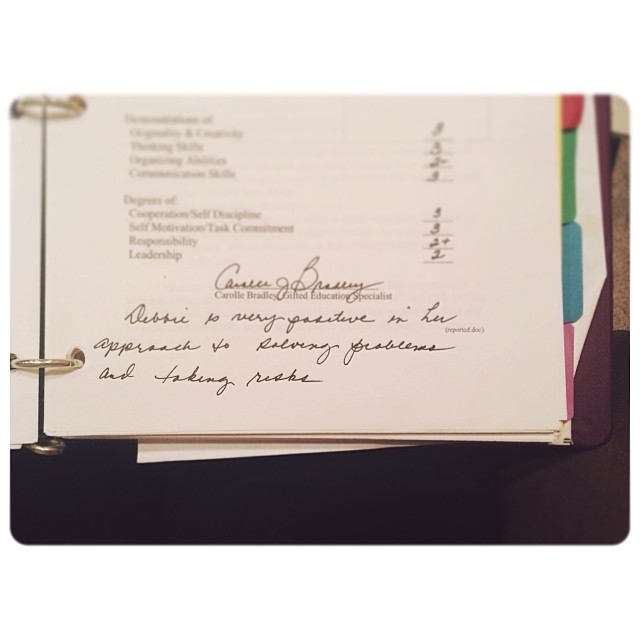 Demonstrations of:
Originality & Creativity 3
Thinking Skills 3
Organizing Abilities 2-
Communication Skills 3
Degrees of:
Cooperation/Self Discipline 3
Self Motivation/Task Commitment 3
Responsibility 2+
Leadership 2
Carolle J Bradley
Carolle Bradley, Gifted Education Specialist
Debbie is very positive in her
(reported.doc)
approach to solving problems
and taking risks